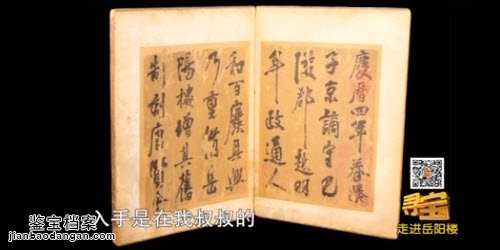 慶曆四年春滕
子京謫守巴
陵郡越明
年政通人
和百廢具興
乃重脩岳
陽樓增其舊
制刻唐賢
入手是在我叔叔的
寻宝
走进岳阳楼
鉴宝档案
jianbaodangan.com